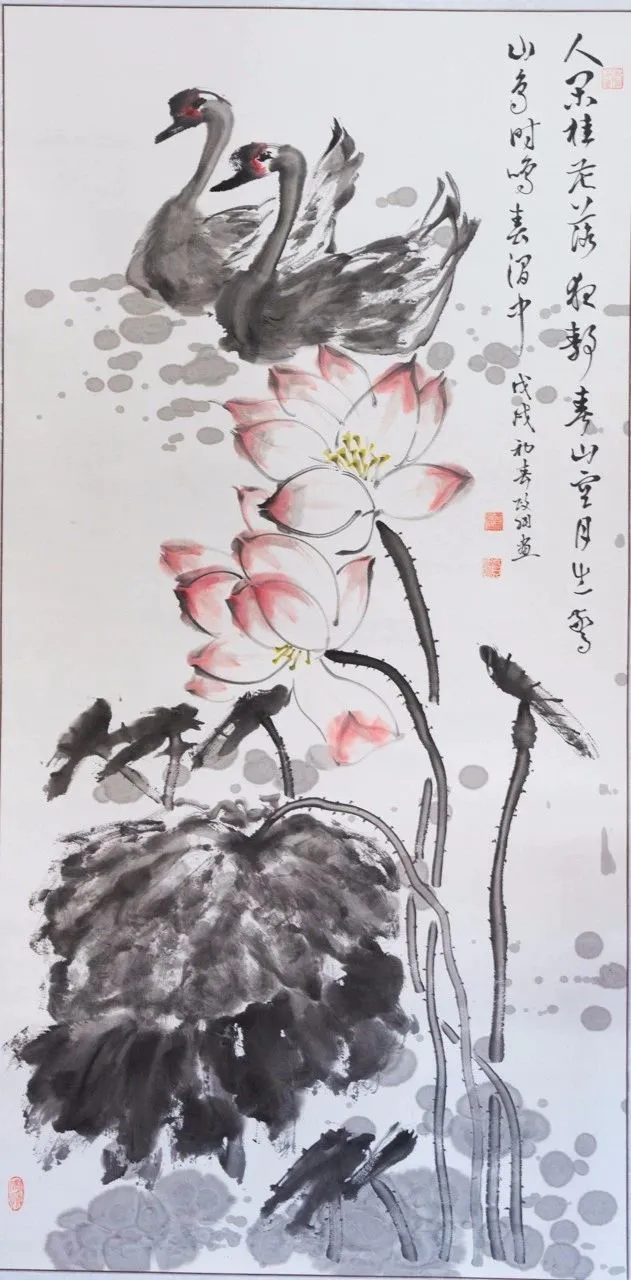 人闲桂花落夜静春山空月出惊
山鸟时鸣春涧中
戊戌初春 画